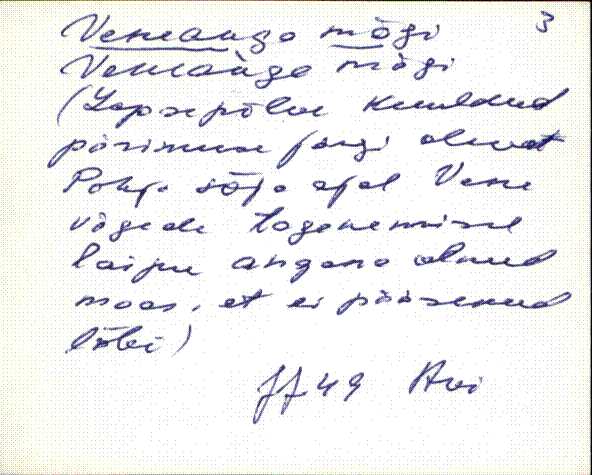 3
Veneauga mägi
Veneauga mägi
(Lapsepõlve kuuldud
pärimuse järgi olevat
Põhja sõja ajal Vene
vägede taganemisel
laipu angana olnud
maas, et ei pääsenud
läbi)
49 Avi